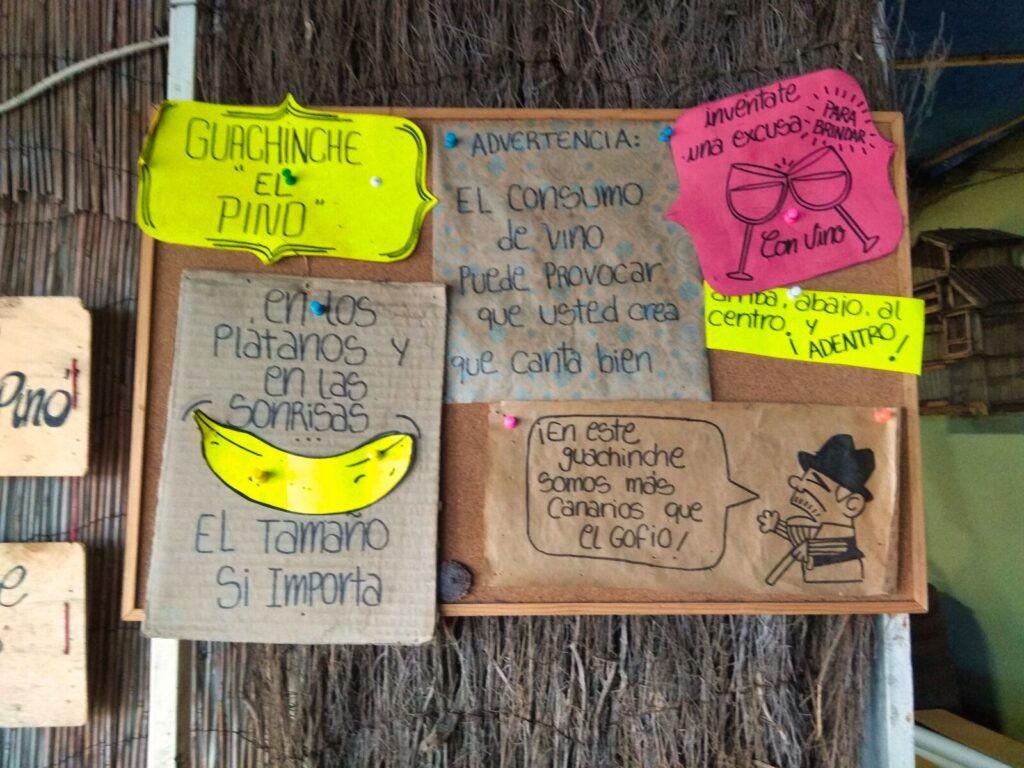 GUACHINCHE
"EL
PINO"
ADVERTENCIA:
EL CONSUMO
de vino
PUEDE PROVOCAR
que usted crea
que canta bien
invéntate
una excusa
PARA
BRINDAR
Con vino
arriba, abajo, al
centro, y
¡ADENTRO!
en los
Platanos y
en las
SONRISAS
...
EL Tamaño
Si Importa
¡En este
guachinche
somos más
Canarios que
el Gofio!
Pino"
e